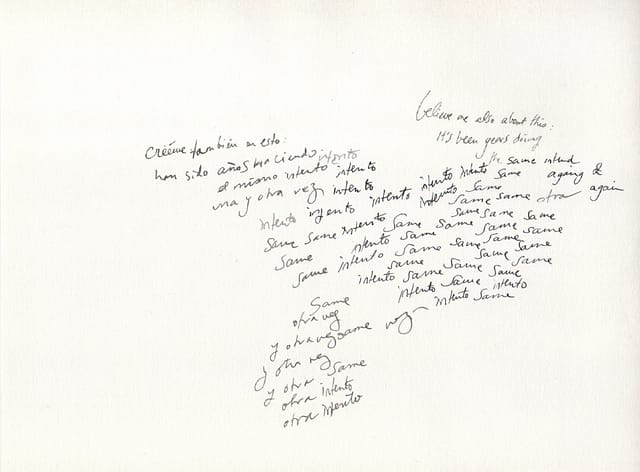 believe me also about this:
It's been years doing
the same intend
again & again
créeme también en esto:
han sido años haciendo intento
el mismo intento intento
una y otra vez intento
intento intento intento intento intento same
same same intento intento same same same otra
same intento same same same same same
same intento same same same same same
intento same same same same
intento same same
intento same intento
intento same
same
otra vez
y otra vez same vez
y otra vez
y otra same
otra intento
otra intento